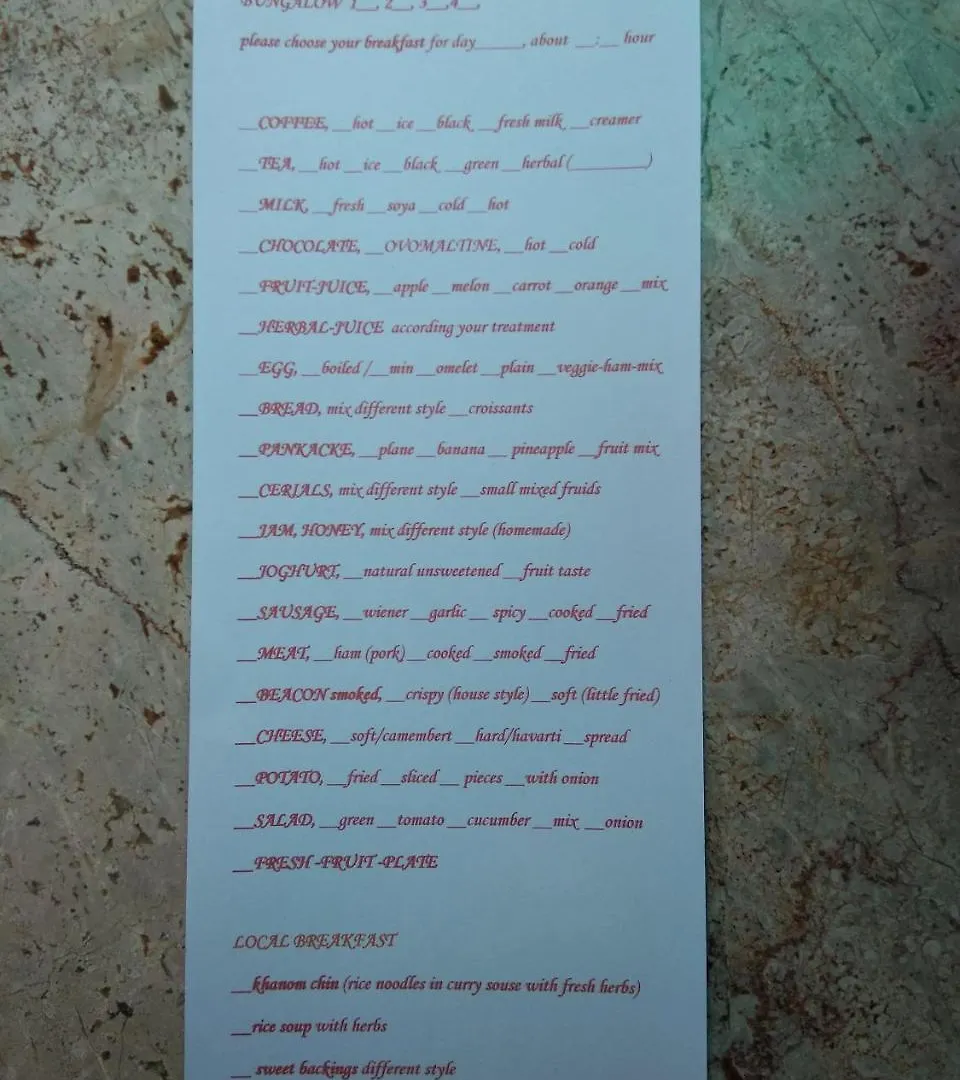 BUNGALOW 1__, 2__, 3__,4__,
please choose your breakfast for day_____, about __:__ hour
__COFFEE, __hot __ice __black __fresh milk __creamer
__TEA, __hot __ice __black __green __herbal (________)
__MILK, __fresh __soya __cold __hot
__CHOCOLATE, __OVOMALTINE, __hot __cold
__FRUIT-JUICE, __apple __melon __carrot __orange __mix
__HERBAL-JUICE according your treatment
__EGG, __boiled /__min __omelet __plain __veggie-ham-mix
__BREAD, mix different style __croissants
__PANKACKE, __plane __banana __ pineapple __fruit mix
__CERIALS, mix different style __small mixed fruids
__JAM, HONEY, mix different style (homemade)
__JOGHURT, __natural unsweetened __fruit taste
__SAUSAGE, __wiener __garlic __ spicy __cooked __fried
__MEAT, __ham (pork)__cooked __smoked __fried
__BEACON smoked, __crispy (house style)__soft (little fried)
__CHEESE, __soft/camembert __hard/havarti __spread
__POTATO, __fried __sliced __ pieces __with onion
__SALAD, __green __tomato __cucumber __mix __onion
__FRESH-FRUIT-PLATE
LOCAL BREAKFAST
__khanom chin (rice noodles in curry souse with fresh herbs)
__rice soup with herbs
__ sweet backings different style